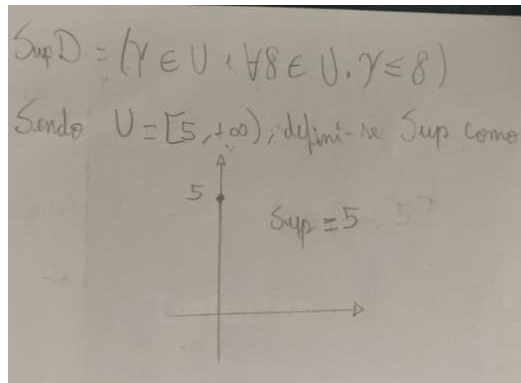 Sup D = (γ ∈ U · ∀8 ∈ U. γ ≤ 8)
Sendo U = [5, +∞), defini-se Sup como
5
Sup = 5